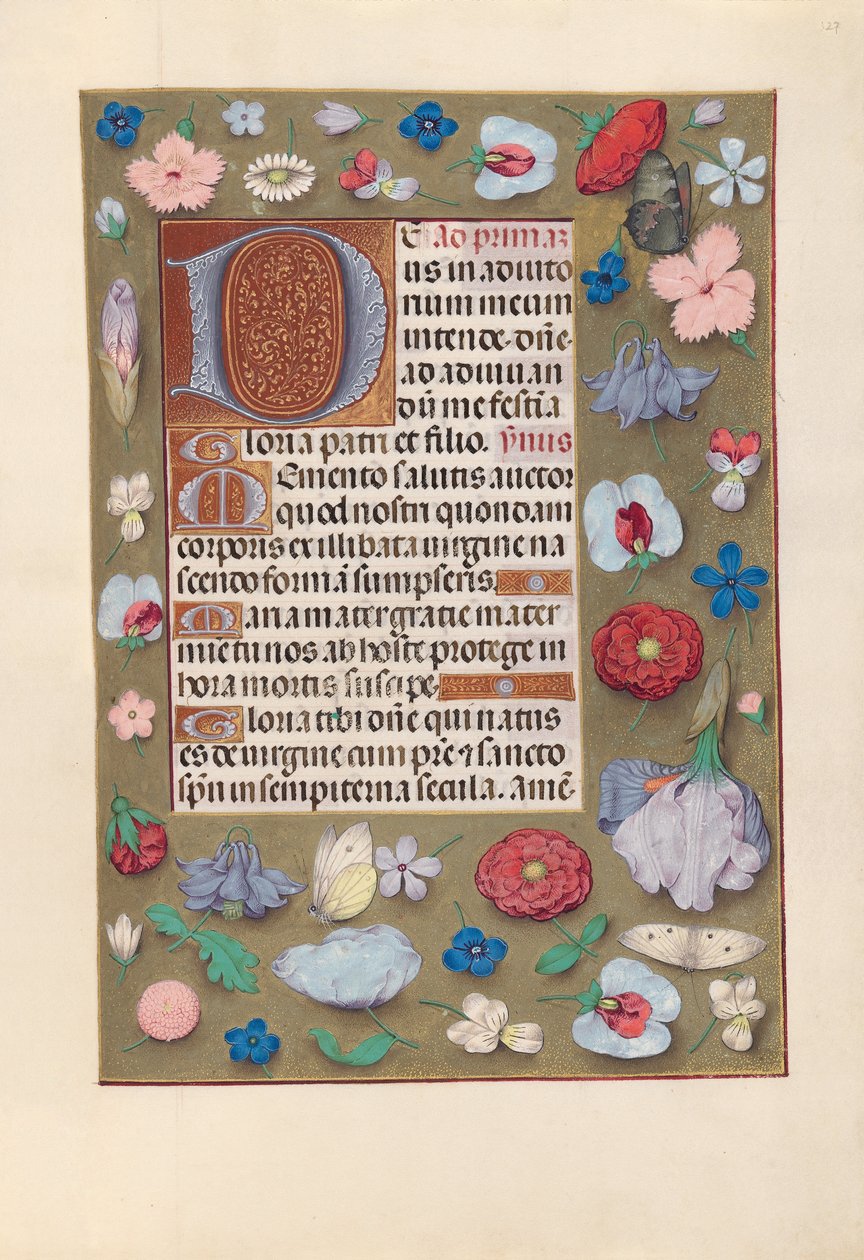 127
E Ad primaz
Dus in adiuto
rium meum
intende. dñe
ad adiuuan
dũ me festĩa
Gloria patri et filio. ỹnus
Memento salutis auctor
quod nostri quondam
corporis ex illibata uirgine na
scendo formã sumpseris.
Maria mater gratie mater
mĩe tu nos ab hoste protege in
hora mortis suscipe
Gloria tibi dñe qui natus
es de uirgine cum pr̃e ⁊ sancto
sp̃u in sempiterna secula. Amẽ